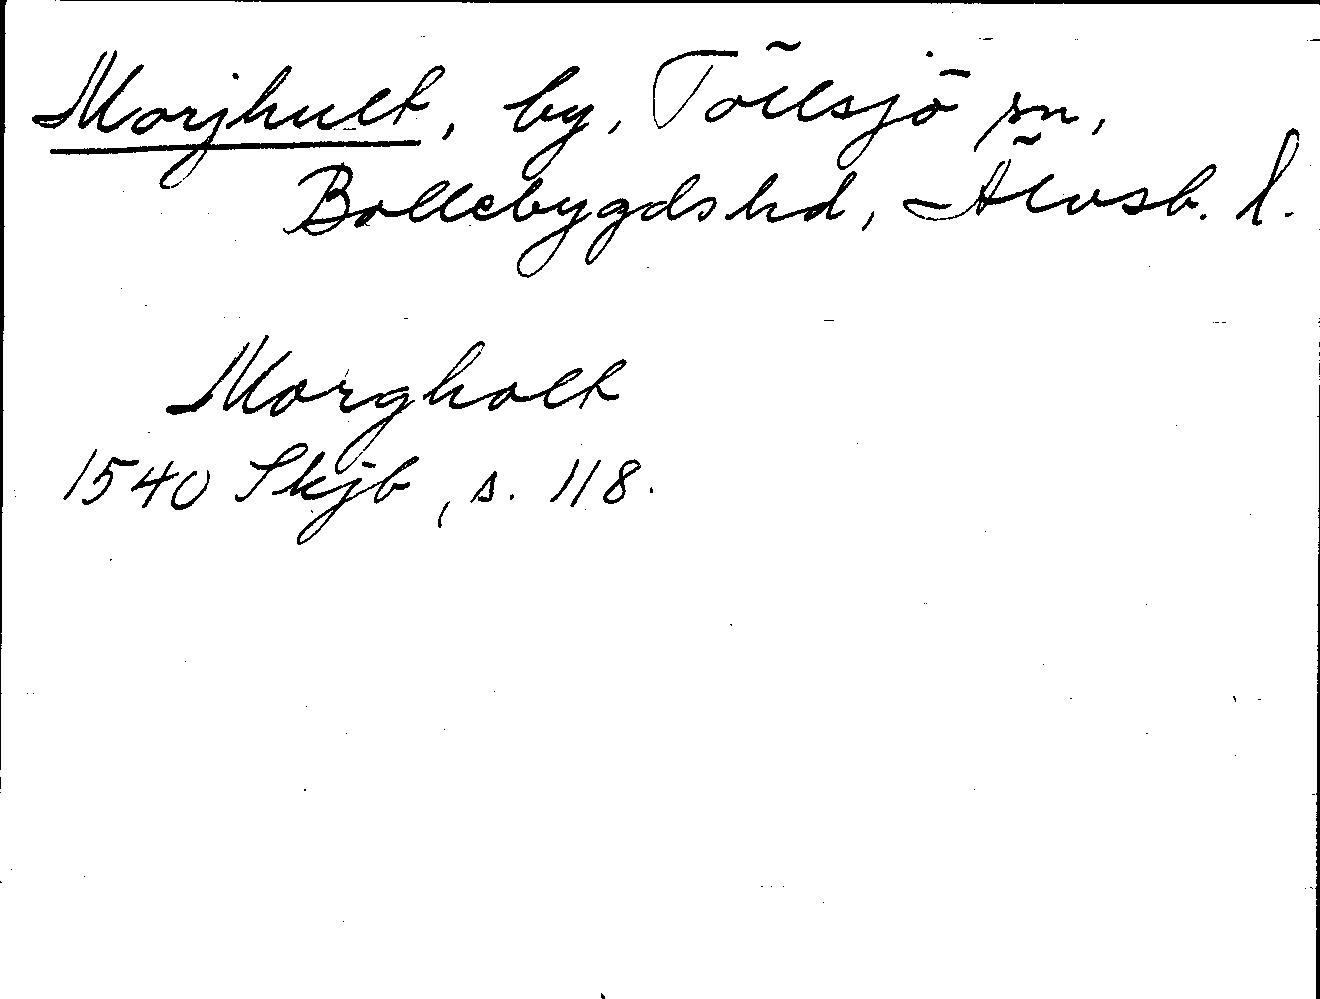 Morjhult, by, Töllsjö sn,
Bollebygds hd, Älvsb. l.
Morgholt
1540 Skjb, s. 118.